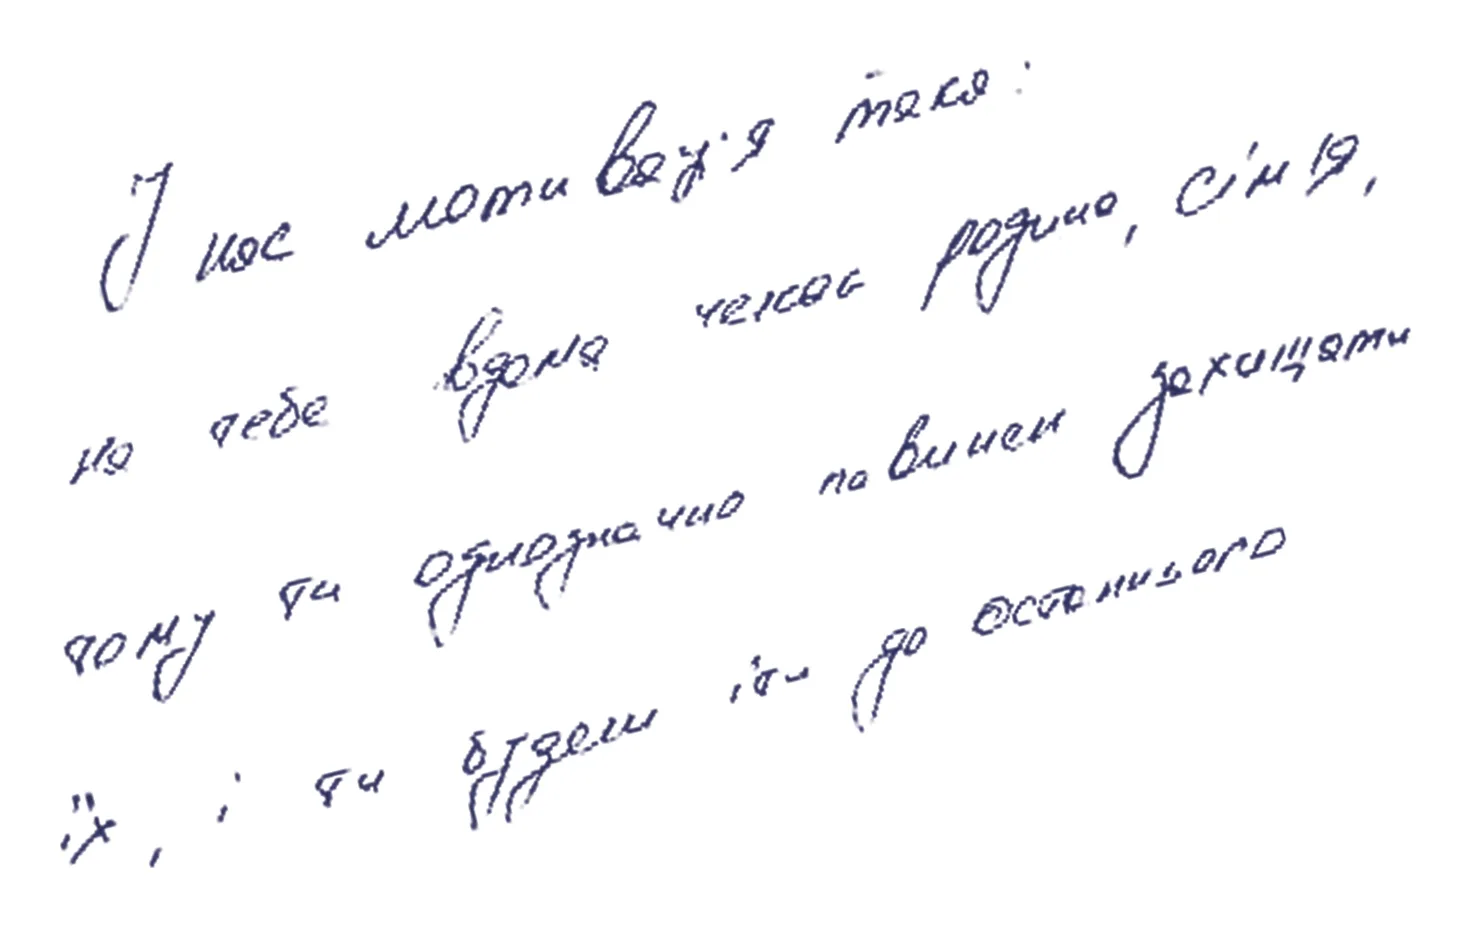 У нас мотивація така:
на тебе вдома чекає родина, сім'я,
тому ти однозначно повинен захищати
їх, і ти будеш іти до останнього